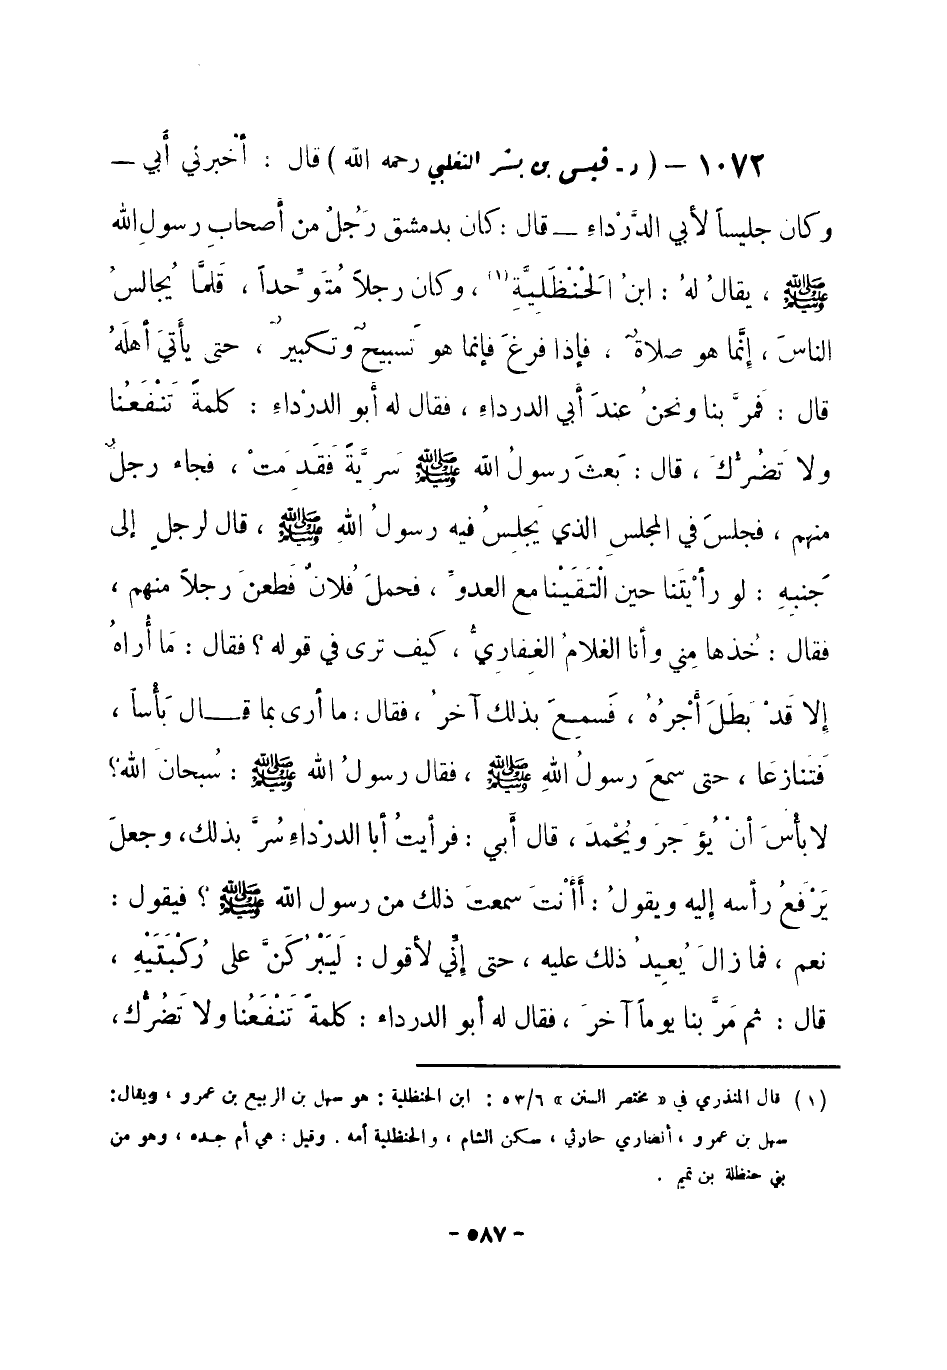 ١٠٧٢ – ( د - قيس بن بشر التغلبي رحمه الله ) قال : أخْبرني أَبي –
وكان جليساً لأبي الدَّرْداءِ – قال : كان بدمشق رَجُلٌ من أَصحابِ رسول الله
ﷺ ، يقالُ لهُ : ابنُ الحَنْظَلِيَّةِ (١) ، وكان رجلاً مُتَوَحِّداً ، قَلمَّا يُجالسُ
الناسَ ، إِنَّما هو صلاةٌ ، فإذا فرغَ فإنما هو تَسبيحٌ وتكبيرٌ ، حتى يأْتيَ أَهلَهُ
قال : فَمرَّ بنا ونحنُ عندَ أَبي الدرداءِ ، فقال له أَبو الدرْداءِ : كلمةً تَنْفَعُنا
ولا تَضُرُّكَ ، قال : بَعثَ رسولُ الله ﷺ سَريَّةً فَقَدِمَتْ ، فجاء رجلٌ
منهم ، فجلسَ في المجلسِ الذي يَجلِسُ فيه رسولُ اللهِ ﷺ ، قال لرجلٍ إلى
جَنبهِ : لو رأَيْتَنا حين الْتَقَيْنا مع العدوِّ ، فحملَ فُلانٌ فَطعنَ رجلاً منهم ،
فقال : خُذها مِني وأنا الغلامُ الغِفاريُّ ، كيف ترى في قوله ؟ فقال : مَا أُراهُ
إلا قَدْ بَطَلَ أَجْرُهُ ، فَسمِعَ بذلك آخرُ ، فقال : ما أرى بما قــال بَأْساً ،
فَتنازعَا ، حتى سمعَ رسولُ اللهِ ﷺ ، فقال رسولُ الله ﷺ : سُبحانَ الله؟
لا بأْسَ أَنْ يُؤجَرَ ويُحْمدَ ، قال أَبي : فرأيتُ أبا الدرْداءِ سُرَّ بذلك ، وجعلَ
يَرْفَعُ رأسه إليه ويقولُ : أَأَنْتَ سمعتَ ذلك من رسول الله ﷺ ؟ فيقول :
نعم ، فما زالَ يُعيدُ ذلك عليه ، حتى إنِّي لأقول : لَيَبْرُكَنَّ على رُكْبَتَيْهِ ،
قال : ثم مَرَّ بنا يوماً آخرَ ، فقال له أَبو الدرداء : كلمةً تَنْفَعُنا ولا تَضُرُّك ،
(١) قال المنذري في « مختصر السنن » ٥٣/٦ : ابن الحنظلية : هو سهل بن الربيع بن عمرو ، ويقال :
سهل بن عمرو ، أنصاري حارثي ، سكن الشام ، والحنظلية أمه . وقيل : هي أم جده ، وهو من
بني حنظلة بن تميم .
– ٥٨٧ –